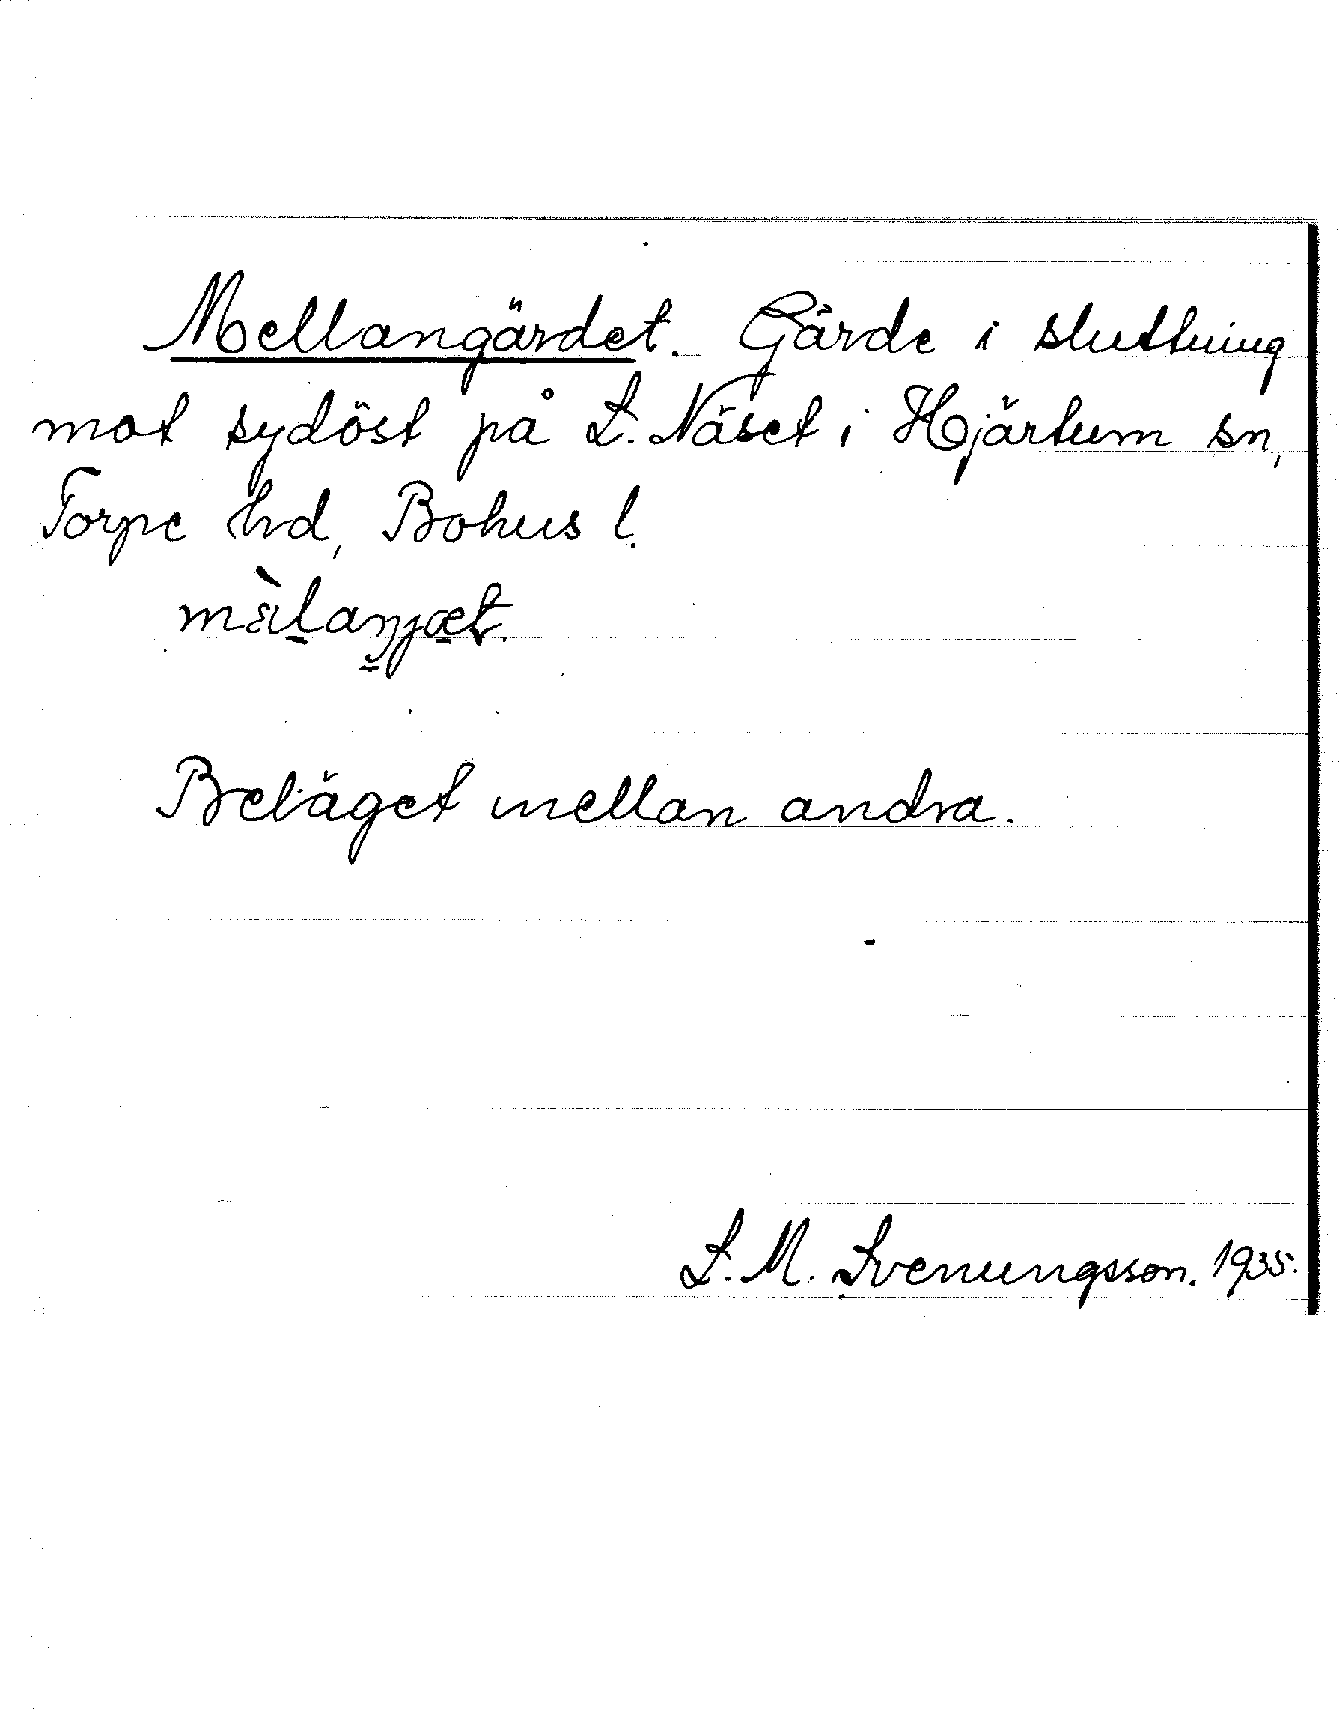 Mellangärdet. Gärde i sluttning
mot sydöst på L. Näset i Hjärtum sn,
Torpe hd, Bohus l.
Beläget mellan andra.
L. M. Svenungsson. 1935.